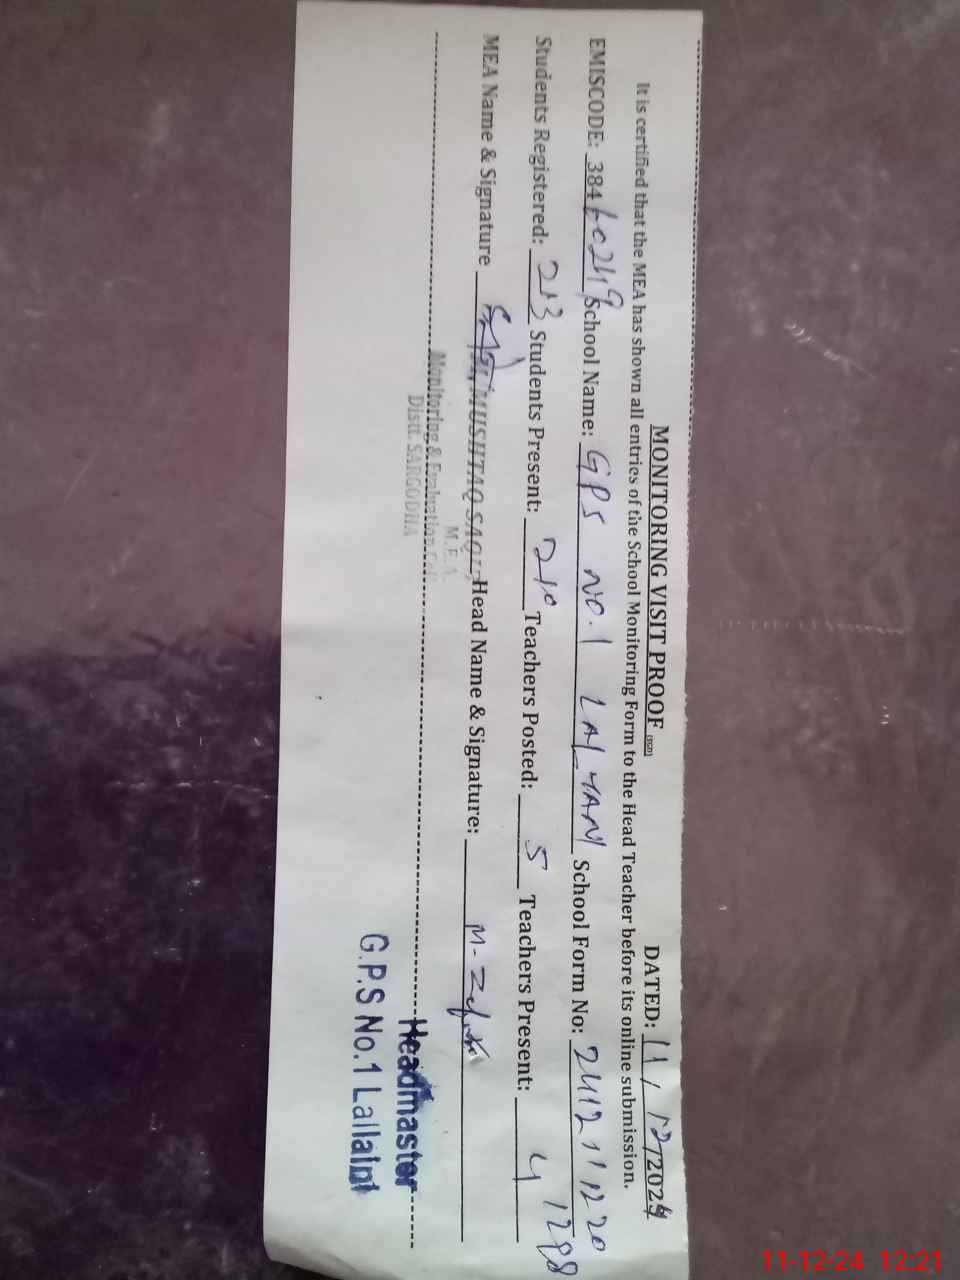 MONITORING VISIT PROOF DATED: 11/12/2024
It is certified that the MEA has shown all entries of the School Monitoring Form to the Head Teacher before its online submission.
EMISCODE: 38460249 School Name: GPS NO.1 School Form No:
Students Registered: 213 Students Present: 210 Teachers Posted: 5 Teachers Present: 4
MEA Name & Signature MUSHTAQ SAQIB Head Name & Signature:
M.E.A.
Monitoring & Evaluation Cell
Distt. SARGODHA
Headmaster
G.P.S No.1 Lallaint
11-12-24 12:21